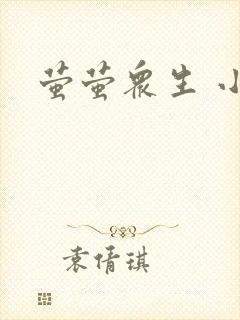 萤萤众生 小
袁倩琪